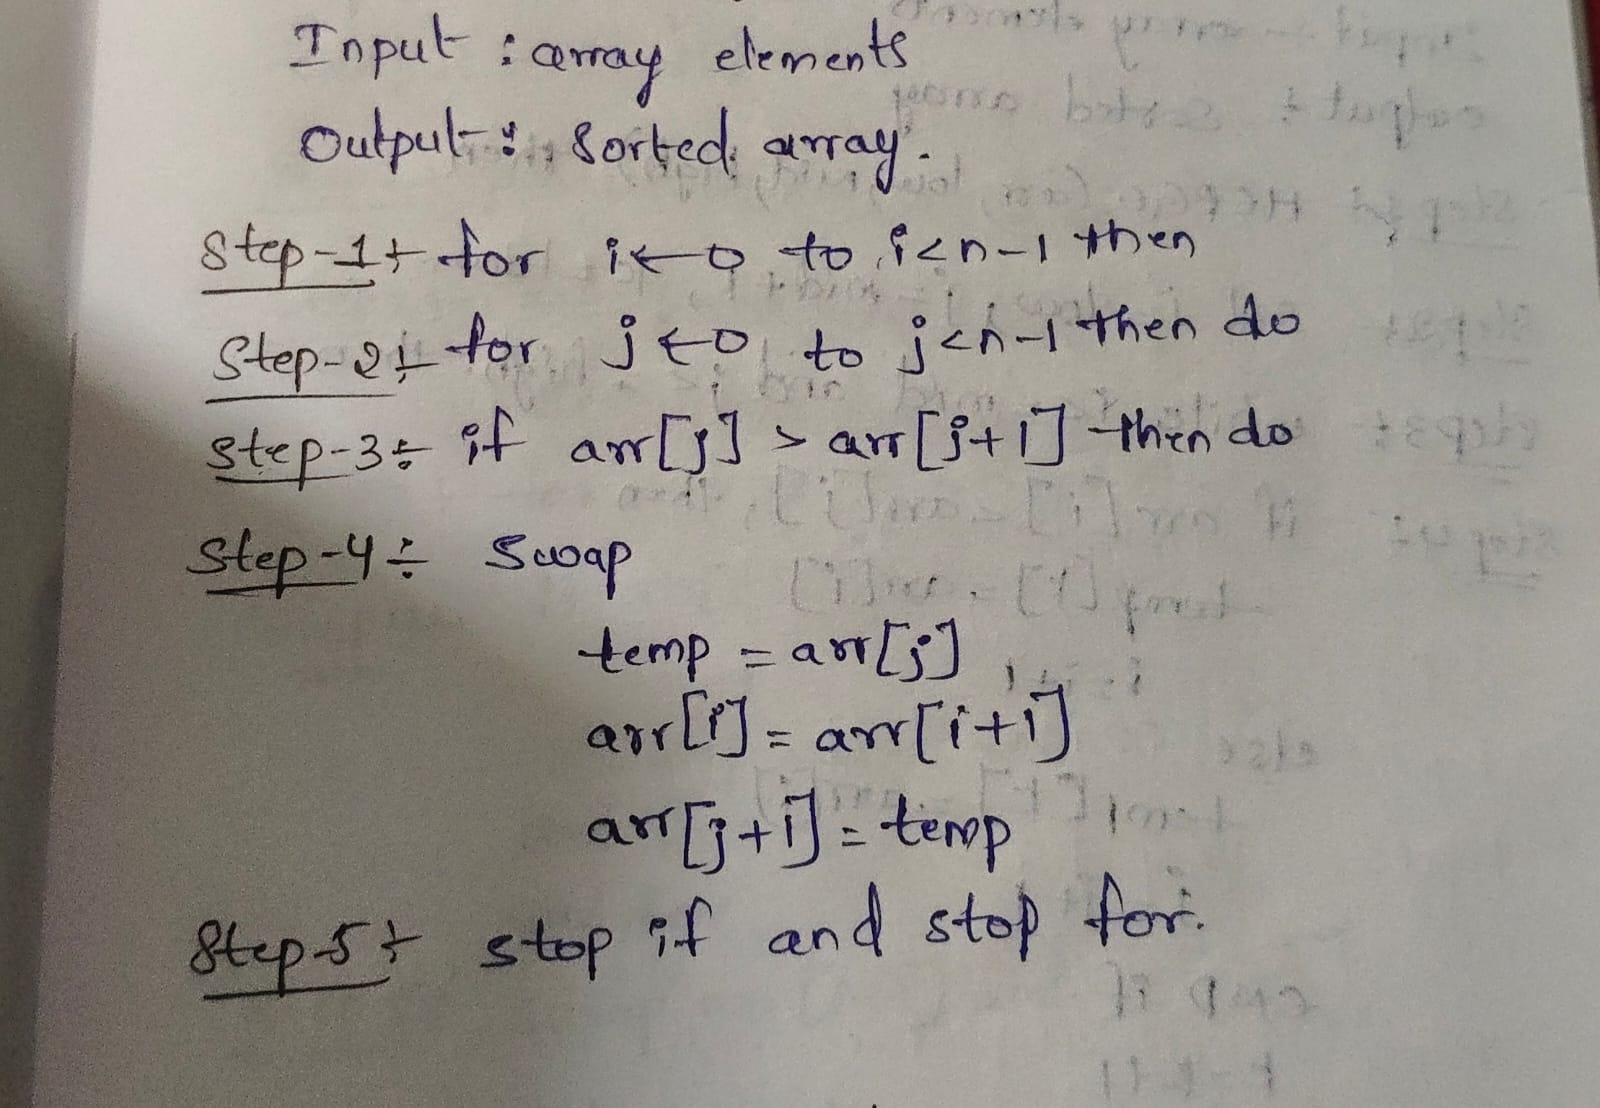 Input : array elements
Output : Sorted array.
Step-1 : for i ← 0 to i<n-1 then
Step-2 : for j ← 0 to j<n-1 then do
Step-3 : if arr[j] > arr[j+1] then do
Step-4 : Swap
temp = arr[j]
arr[i] = arr[i+1]
arr[j+1] = temp
Step-5 : stop if and stop for.